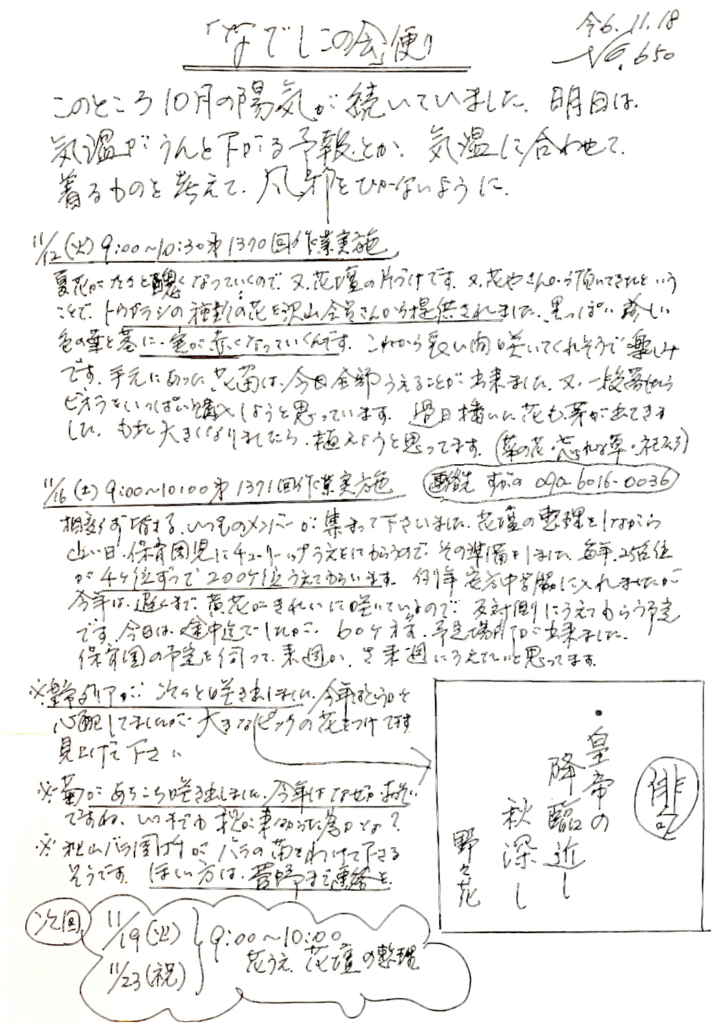 「なでしこの会」便り
令6.11.18
No.650
このところ10月の陽気が続いていました。明日は、
気温がうんと下がる予報とか、気温に合わせて、
着るものを考えて、風邪をひかないように。
11/12(火)9:00〜10:30第1370回作業実施
夏花がだんだんなくなっていくので、又、花壇の片づけです。又、花やさんから頂いてきたという
ことで、トウガラシの種類の花を沢山会員さんから提供されました。黒っぽい珍しい
色の葉と茎に、実が赤くなっていくんです。これから長い間咲いてくれそうで楽しみ
です。手元にあった花苗は、今日全部うえることが出来ました。又、
ビオラをいっぱい購入しようと思っています。過日播いた花も芽が出てきま
した。もっと大きくなりましたら、植えようと思ってます。(菜の花・忘れな草・ネモフィラ)
11/16(土)9:00〜10:00第1371回作業実施
連絡先 すがの 090-6016-0036
相変らず皆さま、いつものメンバーが集まって下さいました。花壇の整理をしながら
近い日、保育園児にチューリップうえをしてもらうので、その準備をしました。毎年、25名位
が4ケ位ずつで200ケ位うえてもらいます。例年
今年は、遅くまで、黄花がきれいに咲いているので、反対側にうえてもらう予定
です。今日は、途中迄でしたが、60ケ
保育園の予定を伺って、来週か、さ来週にうえたいと思ってます。
※皇帝ダリアが、次々と咲き出しました。今年はどうかと
心配してましたが、大きなピンクの花をつけてます。
見上げて下さい
※菊があちこち咲き出しました。今年はなぜか遅い
ですね。いつまでも秋が来なかった為かな?
※秋山バラ園 が、バラの苗をわけて下さる
そうです。ほしい方は、菅野まで連絡を。
俳句
・皇帝の
降臨近し
秋深し
野々花
次回
11/19(火)
11/23(祝)
9:00〜10:00
花うえ、花壇の整理